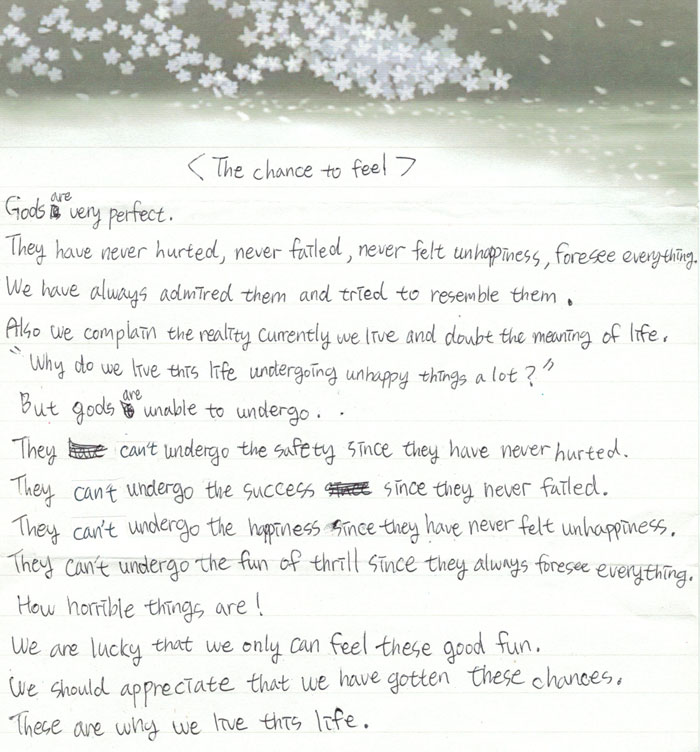 < The chance to feel >
Gods are very perfect.
They have never hurted, never failed, never felt unhappiness, foresee everything.
We have always admired them and tried to resemble them.
Also we complain the reality currently we live and doubt the meaning of life.
"Why do we live this life undergoing unhappy things a lot?"
But gods are unable to undergo. .
They can't undergo the safety since they have never hurted.
They can't undergo the success since they never failed.
They can't undergo the happiness since they have never felt unhappiness.
They can't undergo the fun of thrill since they always foresee everything.
How horrible things are!
We are lucky that we only can feel these good fun.
We should appreciate that we have gotten these chances.
These are why we live this life.